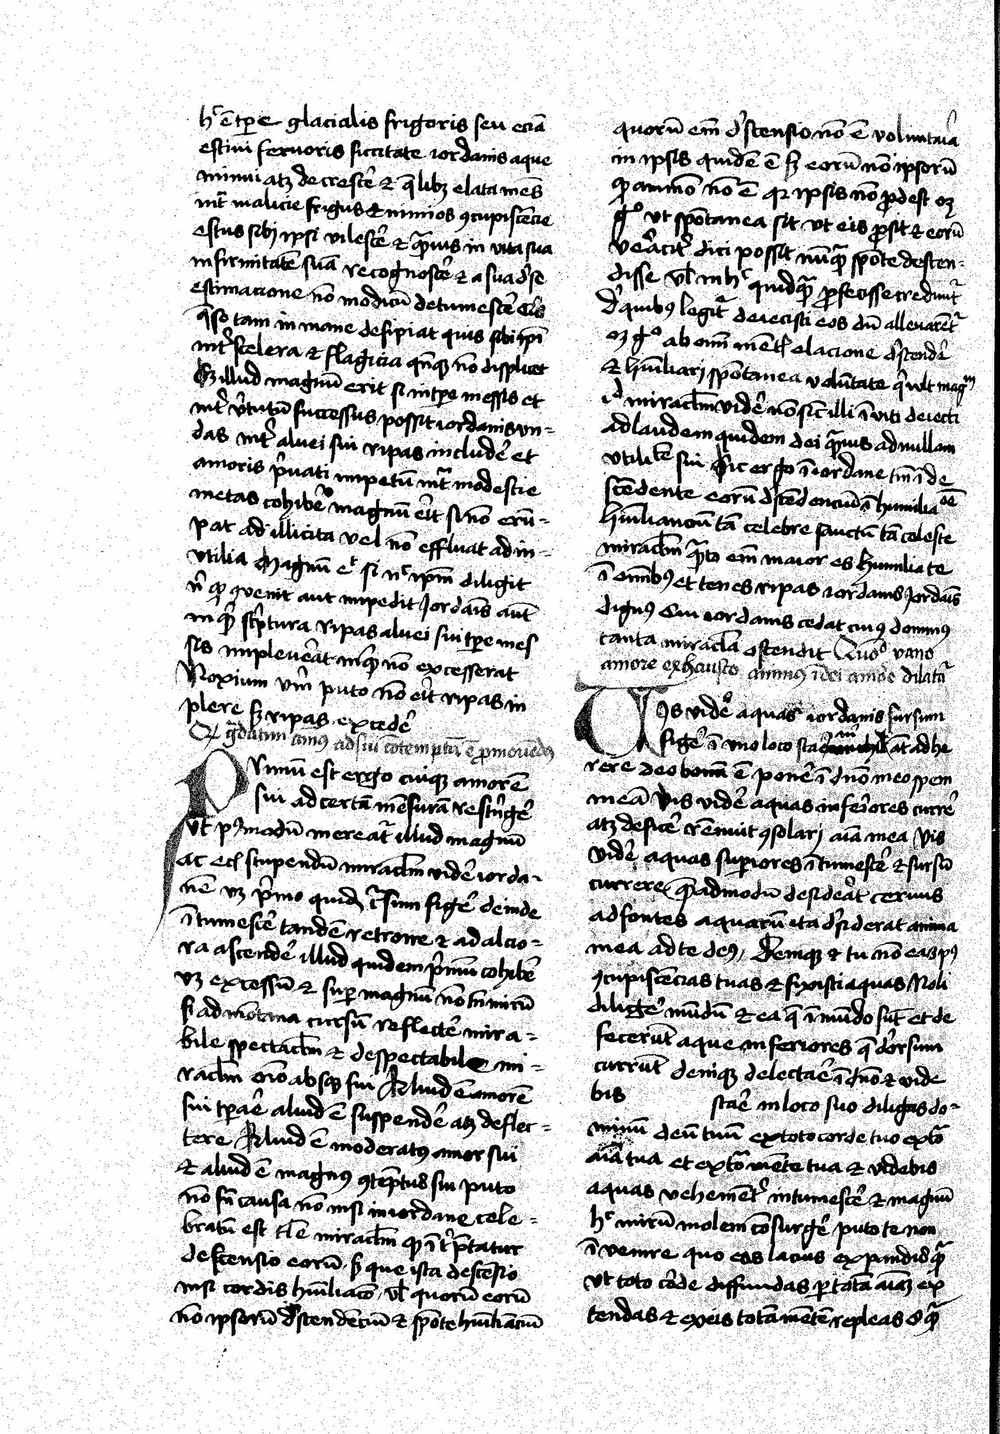 hͨ ē tp̄e glacialis frigoris seu eciā
estiui feruoris siccitate iordanis aque
minui atqꝫ decresc̄e & q̄libꝫ elata mēs
int͛ malicie frigus & nimios ꝯcupisc̄ecie
estus sibi ipsi vilesc̄e & q̄muis in vita sua
infirmitatē suā recognosc̄e & a sua
estimacione nō modicū detumesc̄e
q̄so tam inmane desipiat quis sibi ipi
int͛ scelera & flagicia nō displicet
Sꝫ illud magnū erit si intp̄e messis et
int͛ v̄tutū successus possit iordanis vn-
das int͛ aluei sui ripas includ̄e et
amoris p̄uati impetū int͛ modestie
metas cohib̄e magnū erit si nō erū-
pat ad illicita vel nō effluat ad in-
vtilia Magnū si ipm̄ diligit
qd̄ ꝯuenit aut impedit Jordanis aut
in scriptura ripas aluei sui tp̄e mes
sis impleuerat nō excesserat
Noxium vm̄ puto nō erit ripas in
plere sꝫ ripas exced̄e
gͣdatim ad sui cōtemptū ē p̄mouēdꝰ
Primū est ergo cuiqꝫ amorē
sui ad certā mēsurā restrinḡe
vt pꝰmodū mereat͛ illud magnū
ac stupendū miraclm̄ vid̄e iorda-
nē vꝫ p̄mo quidē sum̄ fiḡe deinde
ītumesc̄e tandē retroire & ad alcio-
ra ascend̄e illud quidem p̄mū cohib̄e
vꝫ excessū & sup̄ magnū nō nimirū
sꝫ ad mōtana cursū reflect̄e mira-
bile spectaclm̄ & despectabile mi-
raclm̄ oīo absqꝫ sui Aliud ē amorē
sui tp̄are aliud ē suspend̄e atqꝫ deflec-
tere Aliud ē moderatꝰ amor sui
& aliud ē magnꝰ ꝯtēptus sui puto
nō sn̄ causa nō nisi in iordane cele-
bratū est miraclm̄ qd̄ ī t͛p̄tatur
descensio eorū sꝫ que ista descēsio
nisi cordis humiliacō vl̄ quorū eorū
nō ipsorū descendēciū & spōte humiliāciū
quorū em̄ descensio nō ē voluntaria
in ipsis quidē ē sꝫ eorū nō ipsorū
qd̄ ammō nō ē qꝛ ipsis nō p̄dest oꝫ
gͦ vt spōtanea sit vt eis p̄sit & eorū
veraciter dici possit nūqͣ spōte descen-
disse vl̄ in hͨ quidqͣ p̄fecisse credunt͛
de quibꝰ legit͛ deiecisti eos dū alleuarent͛
oꝫ gͦ ab omi mētꝭ elacione descend̄e
& humiliari spōtanea volūtate q̄ vult magnū
id miraclm̄ vid̄e nō sic illi īuiti deiecti
ad laudem quidem dei q̄muis ad nullam
vtilitatē sui Sic ergo ī iordane tm̄ ī de
scēdente eorū descēdenciū ī humiliacōe
humilianciū tā celebre sanctū tā celeste
miraclm̄ Quāto em̄ maior es humilia te
ī omībꝰ et tenes ripas iordanis Jordanis
dignꝰ cui iordanis cedat cuiꝰ dominus
tanta miracla ostendit Quō vano
amore exhausto animꝰ ī dei amōe dilatat͛
Uis vid̄e aquas iordanis sursum
fiḡe ī vno loco sta michi aūt adhe
rere deo bonū ē pon̄e ī dn̄o meo spem
meā Vis vid̄e aquas inferiores curr̄e
atqꝫ defic̄e rēnuit ꝯsolari aīa mea Vis
vid̄e aquas superiores ītumesc̄e & sursū
currere quēadmodū desiderat ceruus
ad fontes aquarū ita desiderat anima
mea ad te deꝰ Deniqꝫ & tu nō eas pꝰ
ꝯcupiscēcias tuas & fixisti aquas Noli
diliḡe mūdū & ea q̄ ī mūdo sūt et de
fecerūt aque inferiores q̄ deorsum
currūt deniqꝫ delectare ī dn̄o & vide
bis stare in loco suo diligas do-
minū deū tuū ex toto corde tuo ex tō
aīa tua et ex tō mente tua & videbis
aquas vehement͛ intumesc̄e & magnū
hͨ mirū molem cōsurḡe puto te non
īuenire quo eas lacius expandis qͣ
vt toto corde diffundas p̄ totā aīaꝫ ex
tendas & ex eis totā mētē repleas